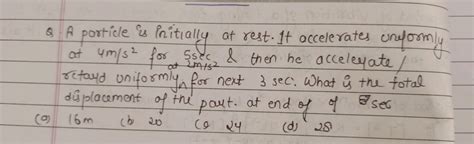 Q A particle is initially at rest. It accelerates uniformly
at 4m/s² for 5sec & then he accelerate/
retard uniformly at 2m/s² for next 3 sec. What is the total
displacement of the part. at end of sec
(a) 16m (b) 20 (c) 24 (d) 28